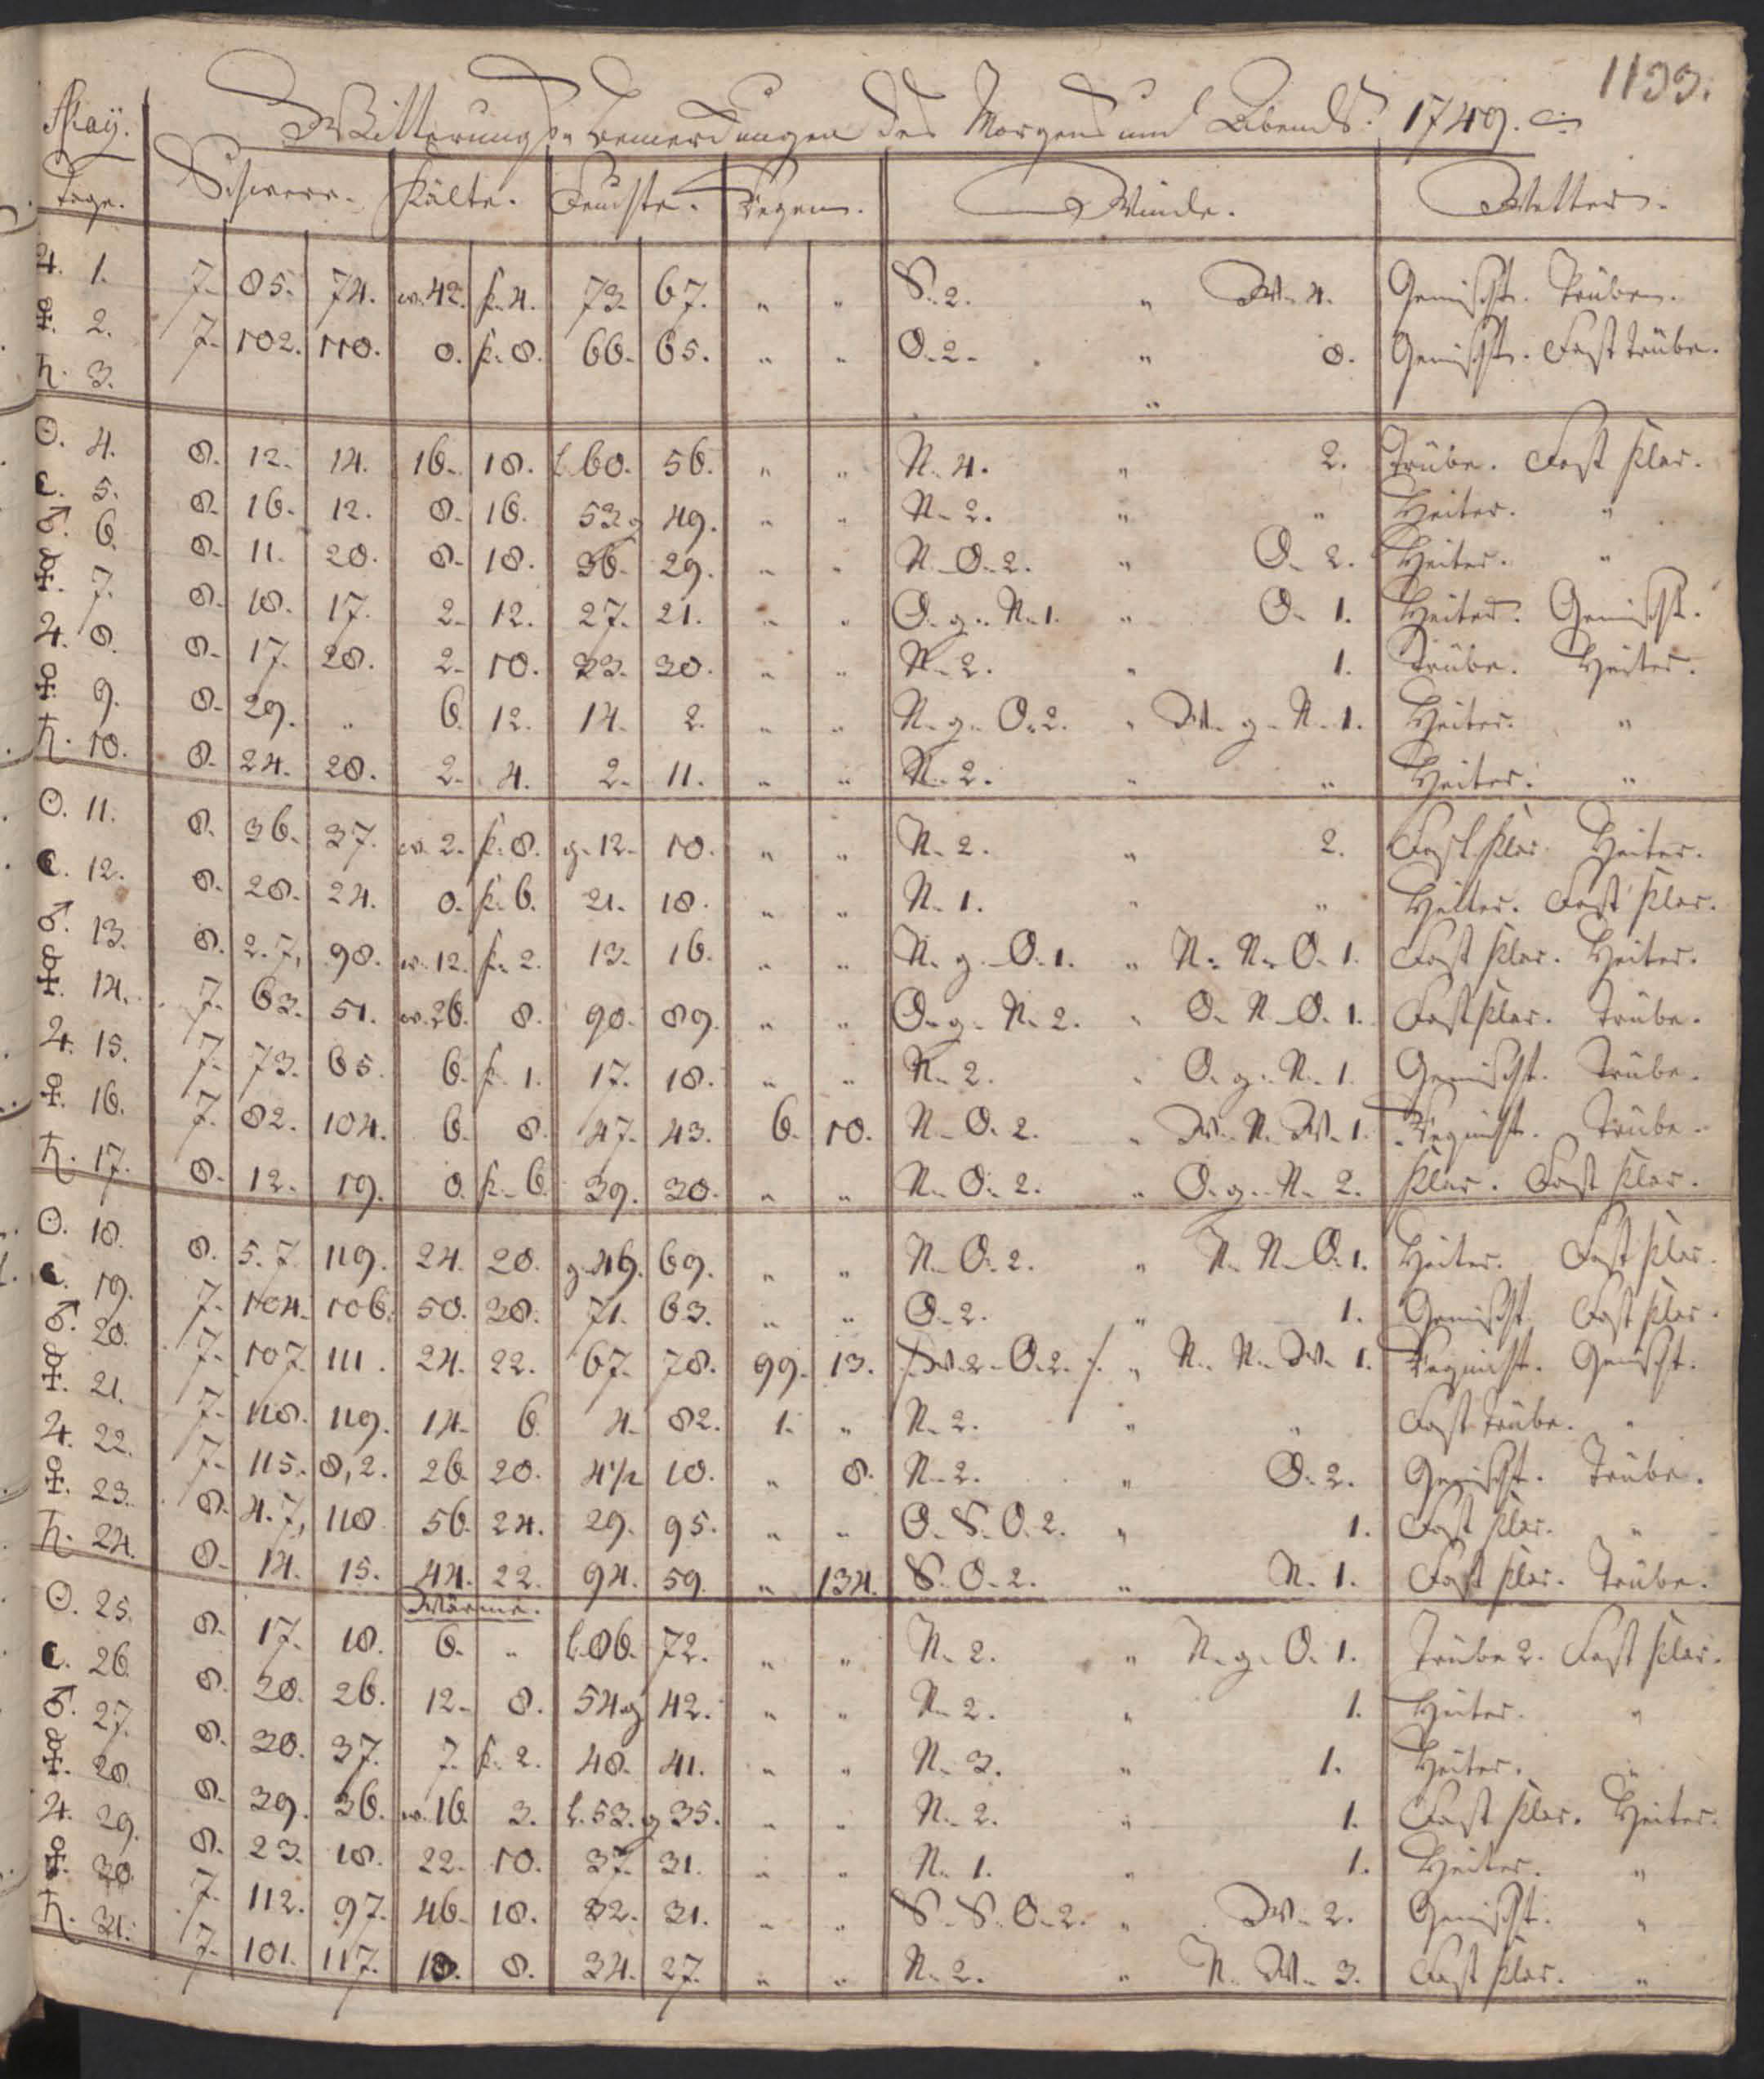 1133.
May. Witterungs Bemerckungen des Morgens und Abends. 1749.
Tage. Schwere. Kälte. Feuchte. Regen. Winde. Wetter.
♃. 1. 7. 85. 74. w. 42. k. 4. 73. 67. " " S. 2. " W. 4. Gemischt. Trübe.
♀. 2. 7. 102. 110. 0. k. 8. 66. 65. " " O. 2. " 0. Gemischt. Fast trübe.
♄. 3. "
☉. 4. 8. 12. 14. 16. 18. l. 60. 56. " " N. 4. " 2. Trübe. Fast klar.
☾. 5. 8. 16. 12. 8. 16. 53. g 49. " " N. 2. " " Heiter. "
♂. 6. 8. 11. 20. 8. 18. 36. 29. " " N. O. 2. " O. 2. Heiter. "
☿. 7. 8. 18. 17. 2. 12. 27. 21. " " O. g. N. 1. " O. 1. Heiter. Gemischt.
♃. 8. 8. 17. 28. 2. 10. 33. 30. " " N. 2. " 1. Trübe. Heiter.
♀. 9. 8. 29. " 6. 12. 14. 2. " " N. g. O. 2. " W. g. N. 1. Heiter. "
♄. 10. 8. 24. 28. 2. 4. 2. 11. " " N. 2. " " Heiter. "
☉. 11. 8. 36. 37. w. 2. k. 8. g. 12. 10. " " N. 2. " 2. Fast klar. Heiter.
☾. 12. 8. 28. 24. 0. k. 6. 21. 18. " " N. 1. " " Heiter. Fast klar.
♂. 13. 8. 2. 7, 98. w. 12. k. 2. 13. 16. " " N. g. O. 1. " N. N. O. 1. Fast klar. Heiter.
☿. 14. 7. 63. 51. w. 26. 8. 90. 89. " " O. g. N. 2. " O. N. O. 1. Fast klar. Trübe.
♃. 15. 7. 73. 65. 6. k. 1. 17. 18. " " N. 2. " O. g. N. 1. Gemischt. Trübe.
♀. 16. 7. 82. 104. 6. 8. 47. 43. 6. 10. N. O. 2. " W. N. W. 1. Regnicht. Trübe.
♄. 17. 8. 12. 19. 0. k. 6. 39. 30. " " N. O. 2. " O. g. N. 2. Klar. Fast klar.
☉. 18. 8. 5. 7. 119. 24. 20. g. 49. 69. " " N. O. 2. " N. N. O. 1. Heiter. Fast klar.
☾. 19. 7. 104. 106. 50. 38. 71. 63. " " O. 2. " 1. Gemischt. Fast klar.
♂. 20. 7. 107. 111. 24. 22. 67. 78. 99. 13. W. 2. O. 2. " N. N. W. 1. Regnicht. Gemischt.
☿. 21. 7. 118. 119. 14. 6. 4. 82. 1. " N. 2. " " Fast trübe. "
♃. 22. 7. 115. 8, 2. 26. 20. 4½ 10. " 8. N. 2. " O. 2. Gemischt. Trübe.
♀. 23. 8. 4. 7, 118 56. 24. 29. 95. " " O. S. O. 2. " 1. Fast klar. "
♄. 24. 8. 14. 15. 44. 22. 94. 59. " 134. S. O. 2. " N. 1. Fast klar. Trübe.
Wärme.
☉. 25. 8. 17. 18. 6. " l. 86. 72. " " N. 2. " N. g. O. 1. Trübe 2. Fast klar.
☾. 26. 8. 20. 26. 12. 8. 54. g 42. " " N. 2. " 1. Heiter. "
♂. 27. 8. 30. 37. 7. k. 2. 48. 41. " " N. 3. " 1. Heiter. "
☿. 28. 8. 39. 36. w. 16. 3. l. 53. g 35. " " N. 2. " 1. Fast klar. Heiter.
♃. 29. 8. 23. 18. 22. 10. 37. 31. " " N. 1. " 1. Heiter. "
♀. 30. 7. 112. 97. 46. 18. 32. 31. " " S. S. O. 2. " W. 2. Gemischt. "
♄. 31. 7. 101. 117. 18. 8. 34. 27. " " N. 2. " N. W. 3. Fast klar. "